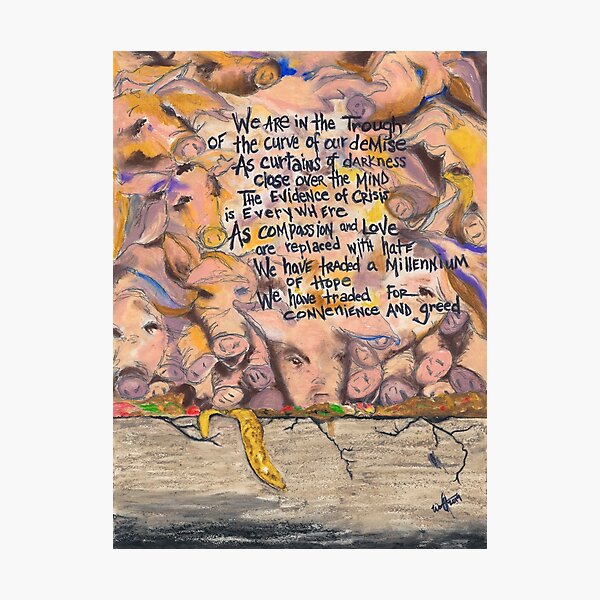 We ARE in the Trough
OF the curve of our demise
As curtains of darkness
close over the Mind
The Evidence of Crisis
is EveryWHERE
As compassion and Love
are replaced with hate
We have traded a Millennium
of Hope
We have traded FOR
convenience AND greed